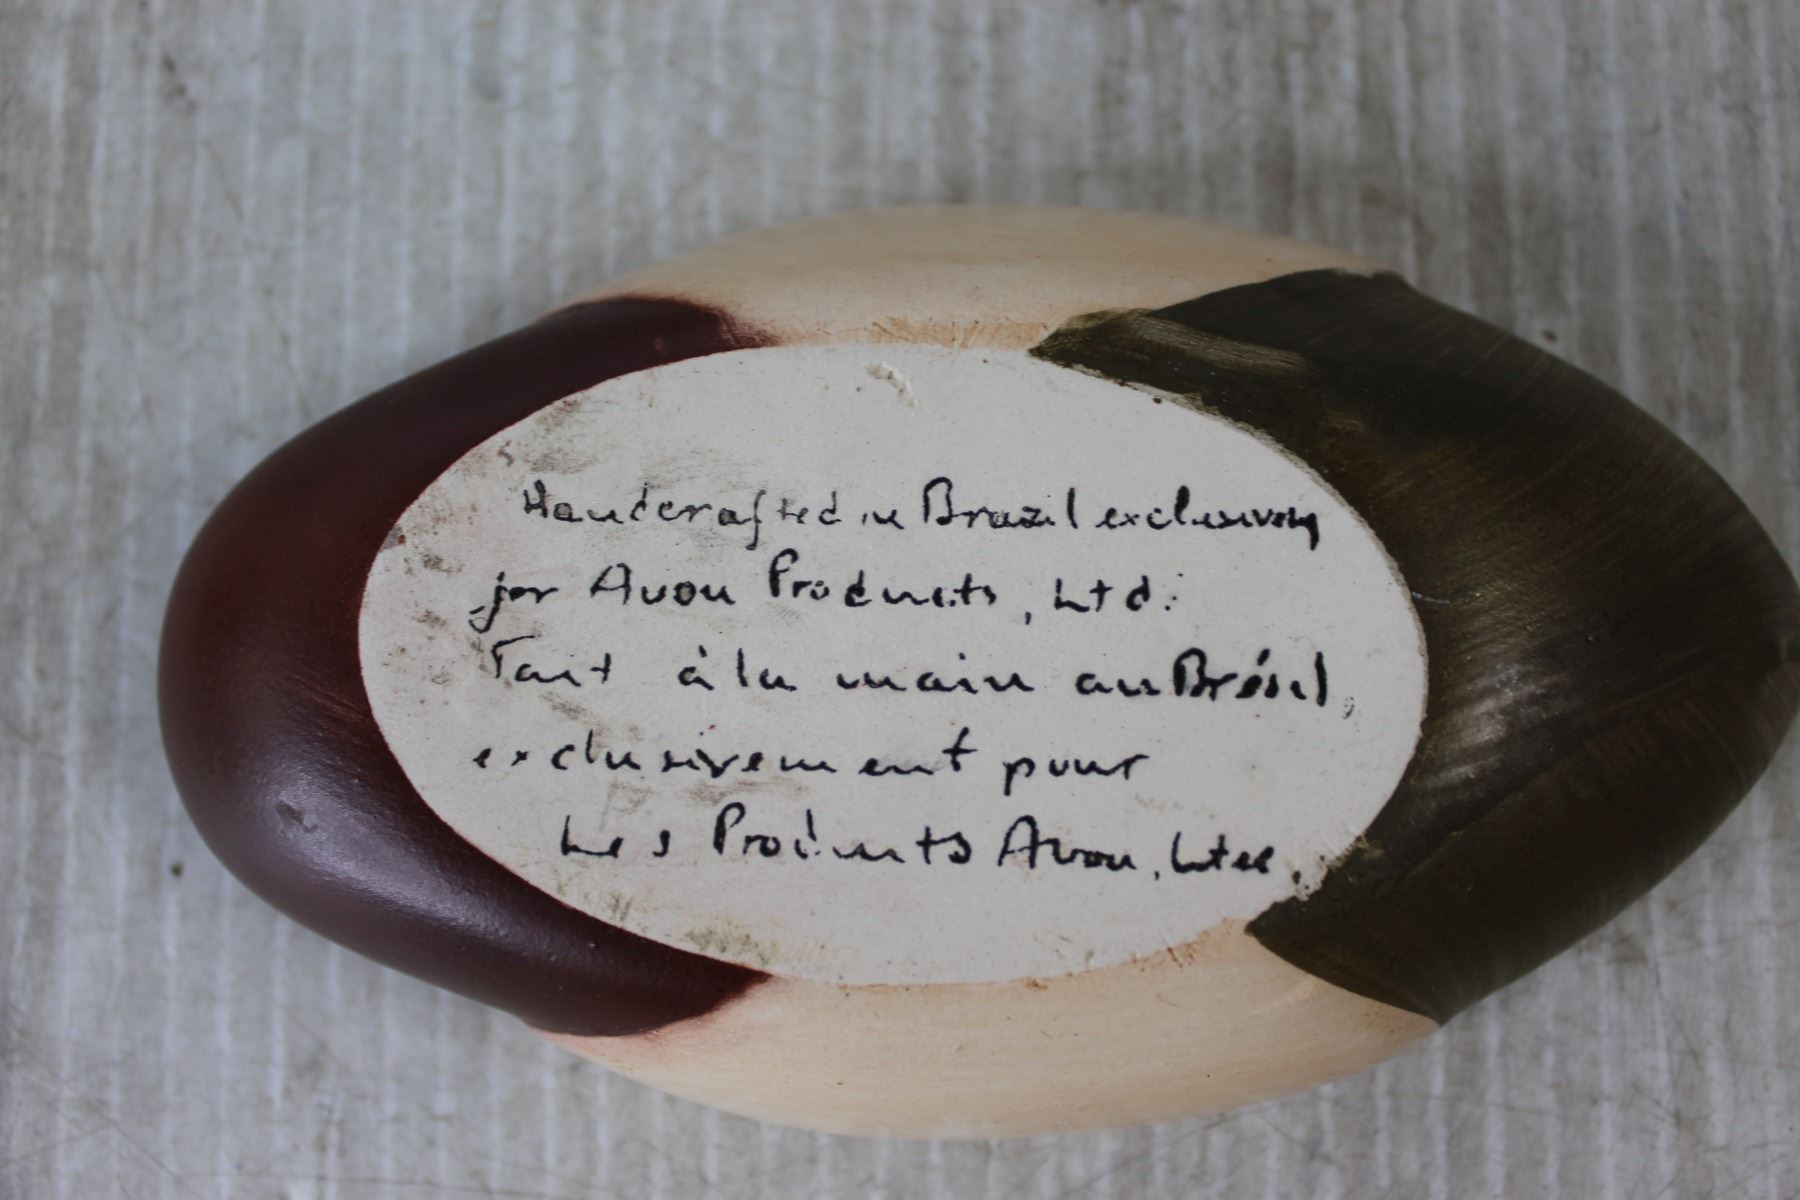 Handcrafted in Brazil exclusively
for Avon Products, Ltd.
Fait à la main au Brésil,
exclusivement pour
Les Produits Avon, Ltee.